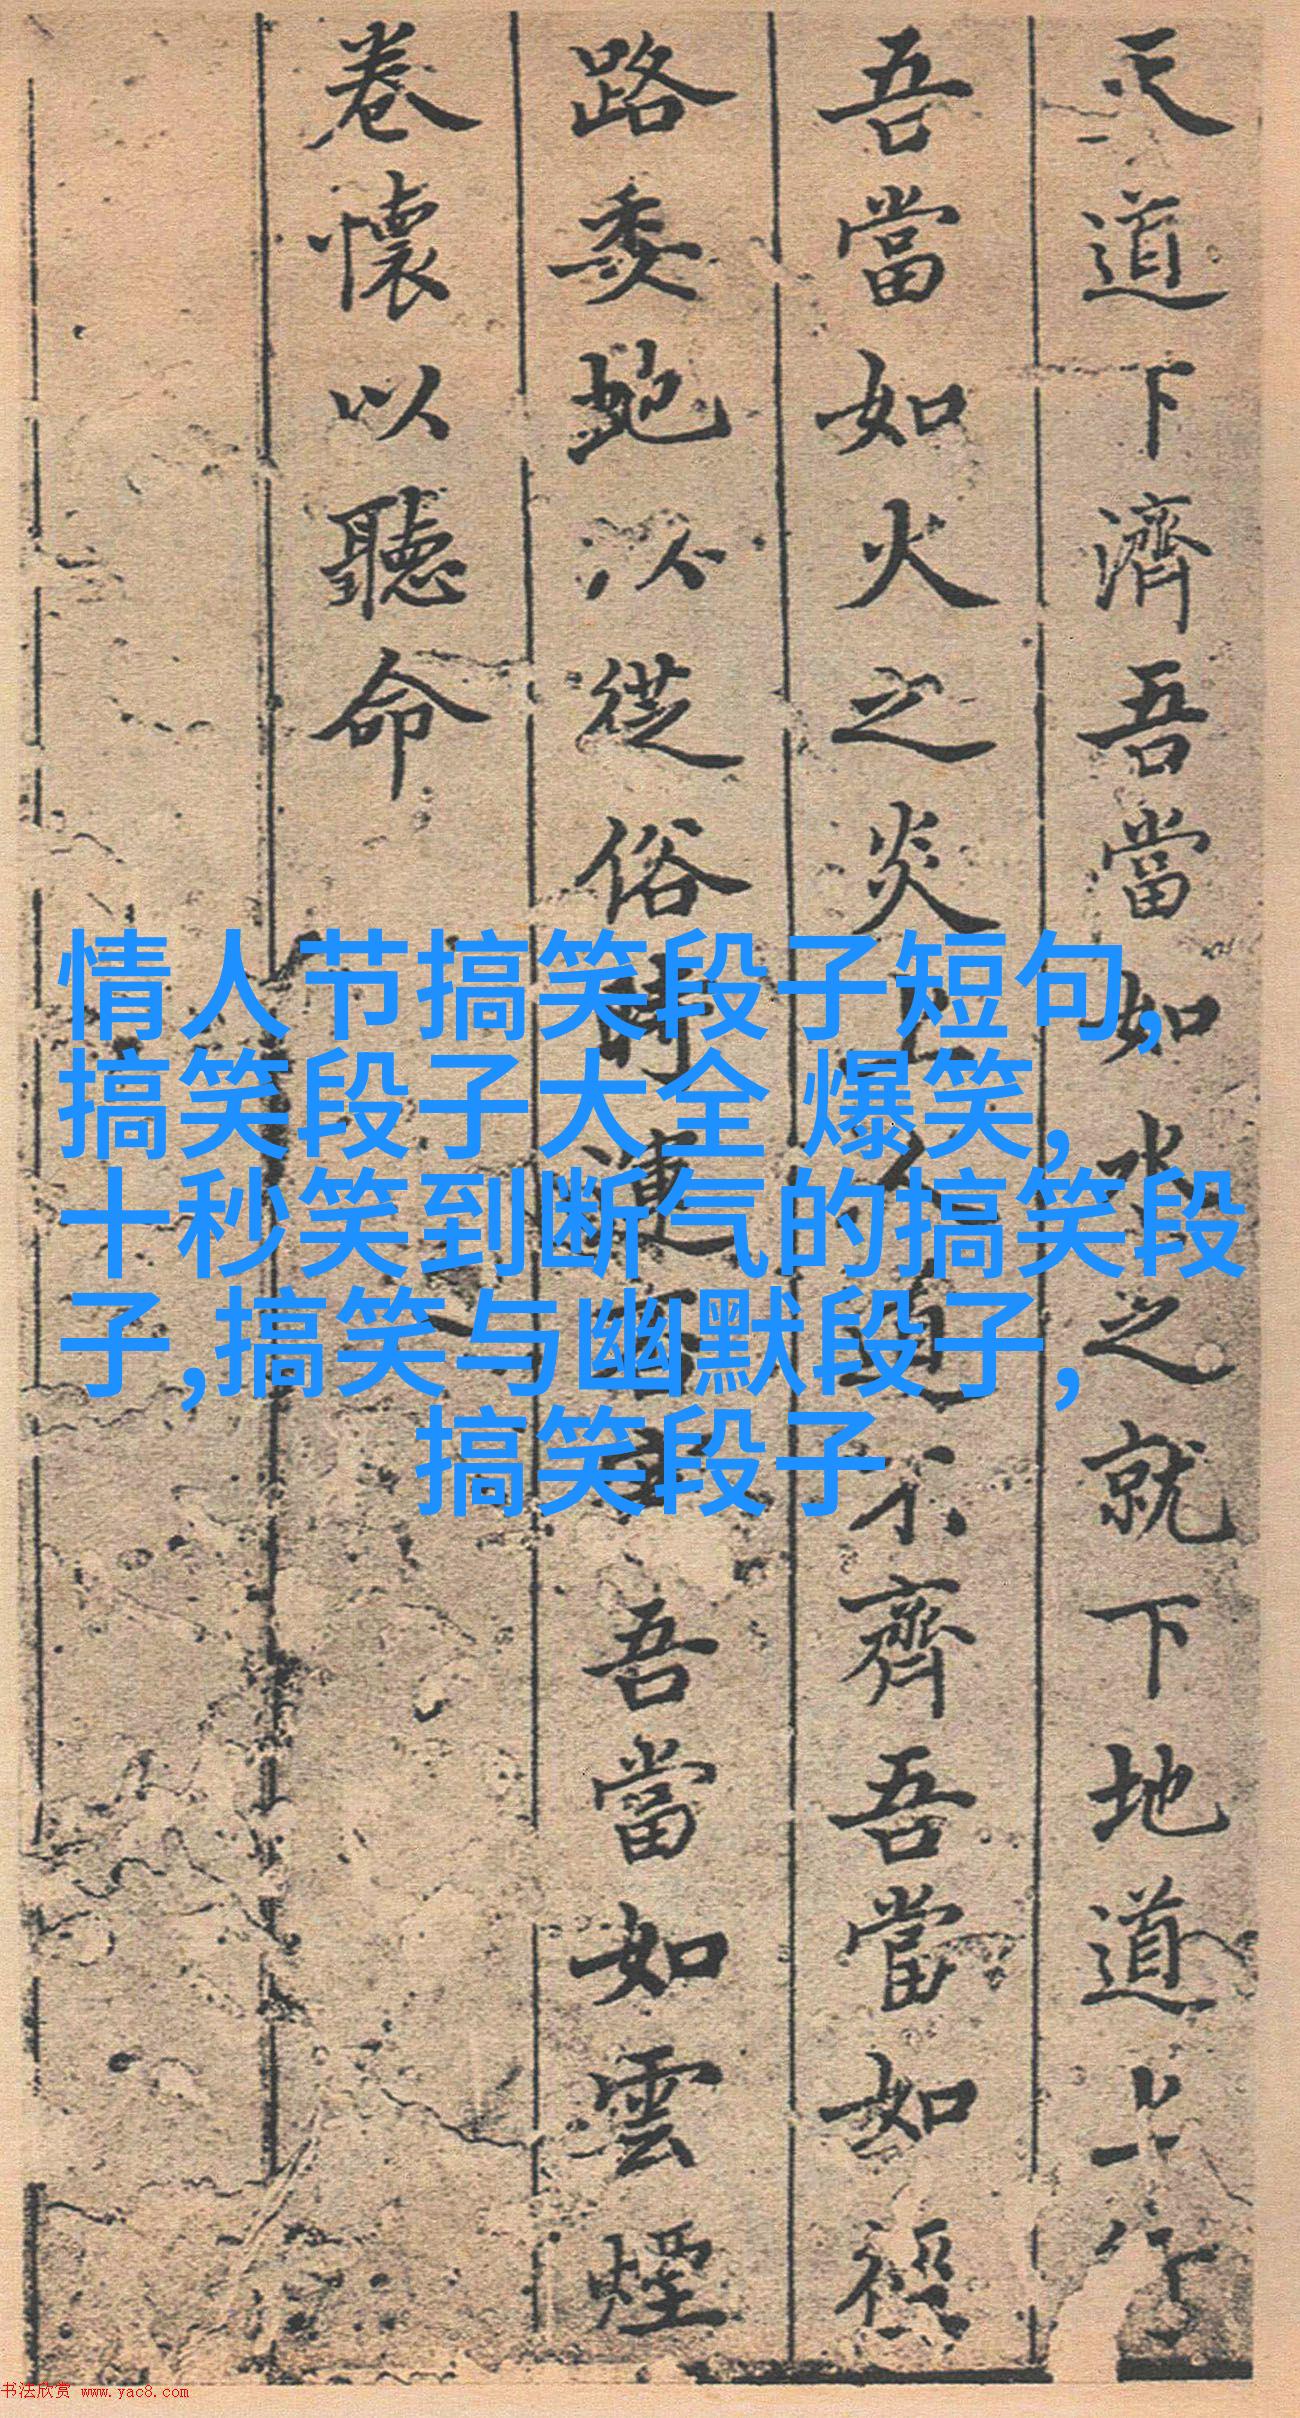 天道下濟吾當如水之就下地道上行
吾當如火之炎上人道不齊吾當如徑
路委虵以從俗時運吾當如雲煙
卷懷以聽命
情人节搞笑段子短句,
搞笑段子大全 爆笑,
十秒笑到断气的搞笑段
子,搞笑与幽默段子,
搞笑段子
书法欣赏 www.yac8.com